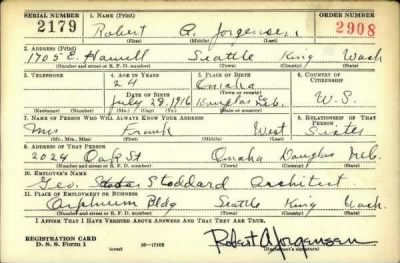 SERIAL NUMBER 1. NAME (Print) ORDER NUMBER
2179 Robert A. Jorgensen 2908
(First) (Middle) (Last)
2. ADDRESS (Print)
1705 E. Howell Seattle King Wash
(Number and street or R. F. D. number) (Town) (County) (State)
3. TELEPHONE 4. AGE IN YEARS 5. PLACE OF BIRTH 6. COUNTRY OF CITIZENSHIP
24 Omaha
DATE OF BIRTH (Town or county)
July 29, 1916 Douglas Neb. U.S.
(Exchange) (Number) (Mo.) (Day) (Yr.) (State or country)
7. NAME OF PERSON WHO WILL ALWAYS KNOW YOUR ADDRESS 8. RELATIONSHIP OF THAT PERSON
Mrs Frank West Sister
(Mr., Mrs., Miss) (First) (Middle) (Last)
9. ADDRESS OF THAT PERSON
2024 Oak St Omaha Douglas Neb.
(Number and street or R. F. D. number) (Town) (County) (State)
10. EMPLOYER'S NAME
Geo. Stoddard Architect
11. PLACE OF EMPLOYMENT OR BUSINESS
Orpheum Bldg Seattle King Wash.
(Number and street or R. F. D. number) (Town) (County) (State)
I AFFIRM THAT I HAVE VERIFIED ABOVE ANSWERS AND THAT THEY ARE TRUE.
REGISTRATION CARD
D. S. S. Form 1 (over) 16—17105 Robert A Jorgensen
(Registrant's signature)